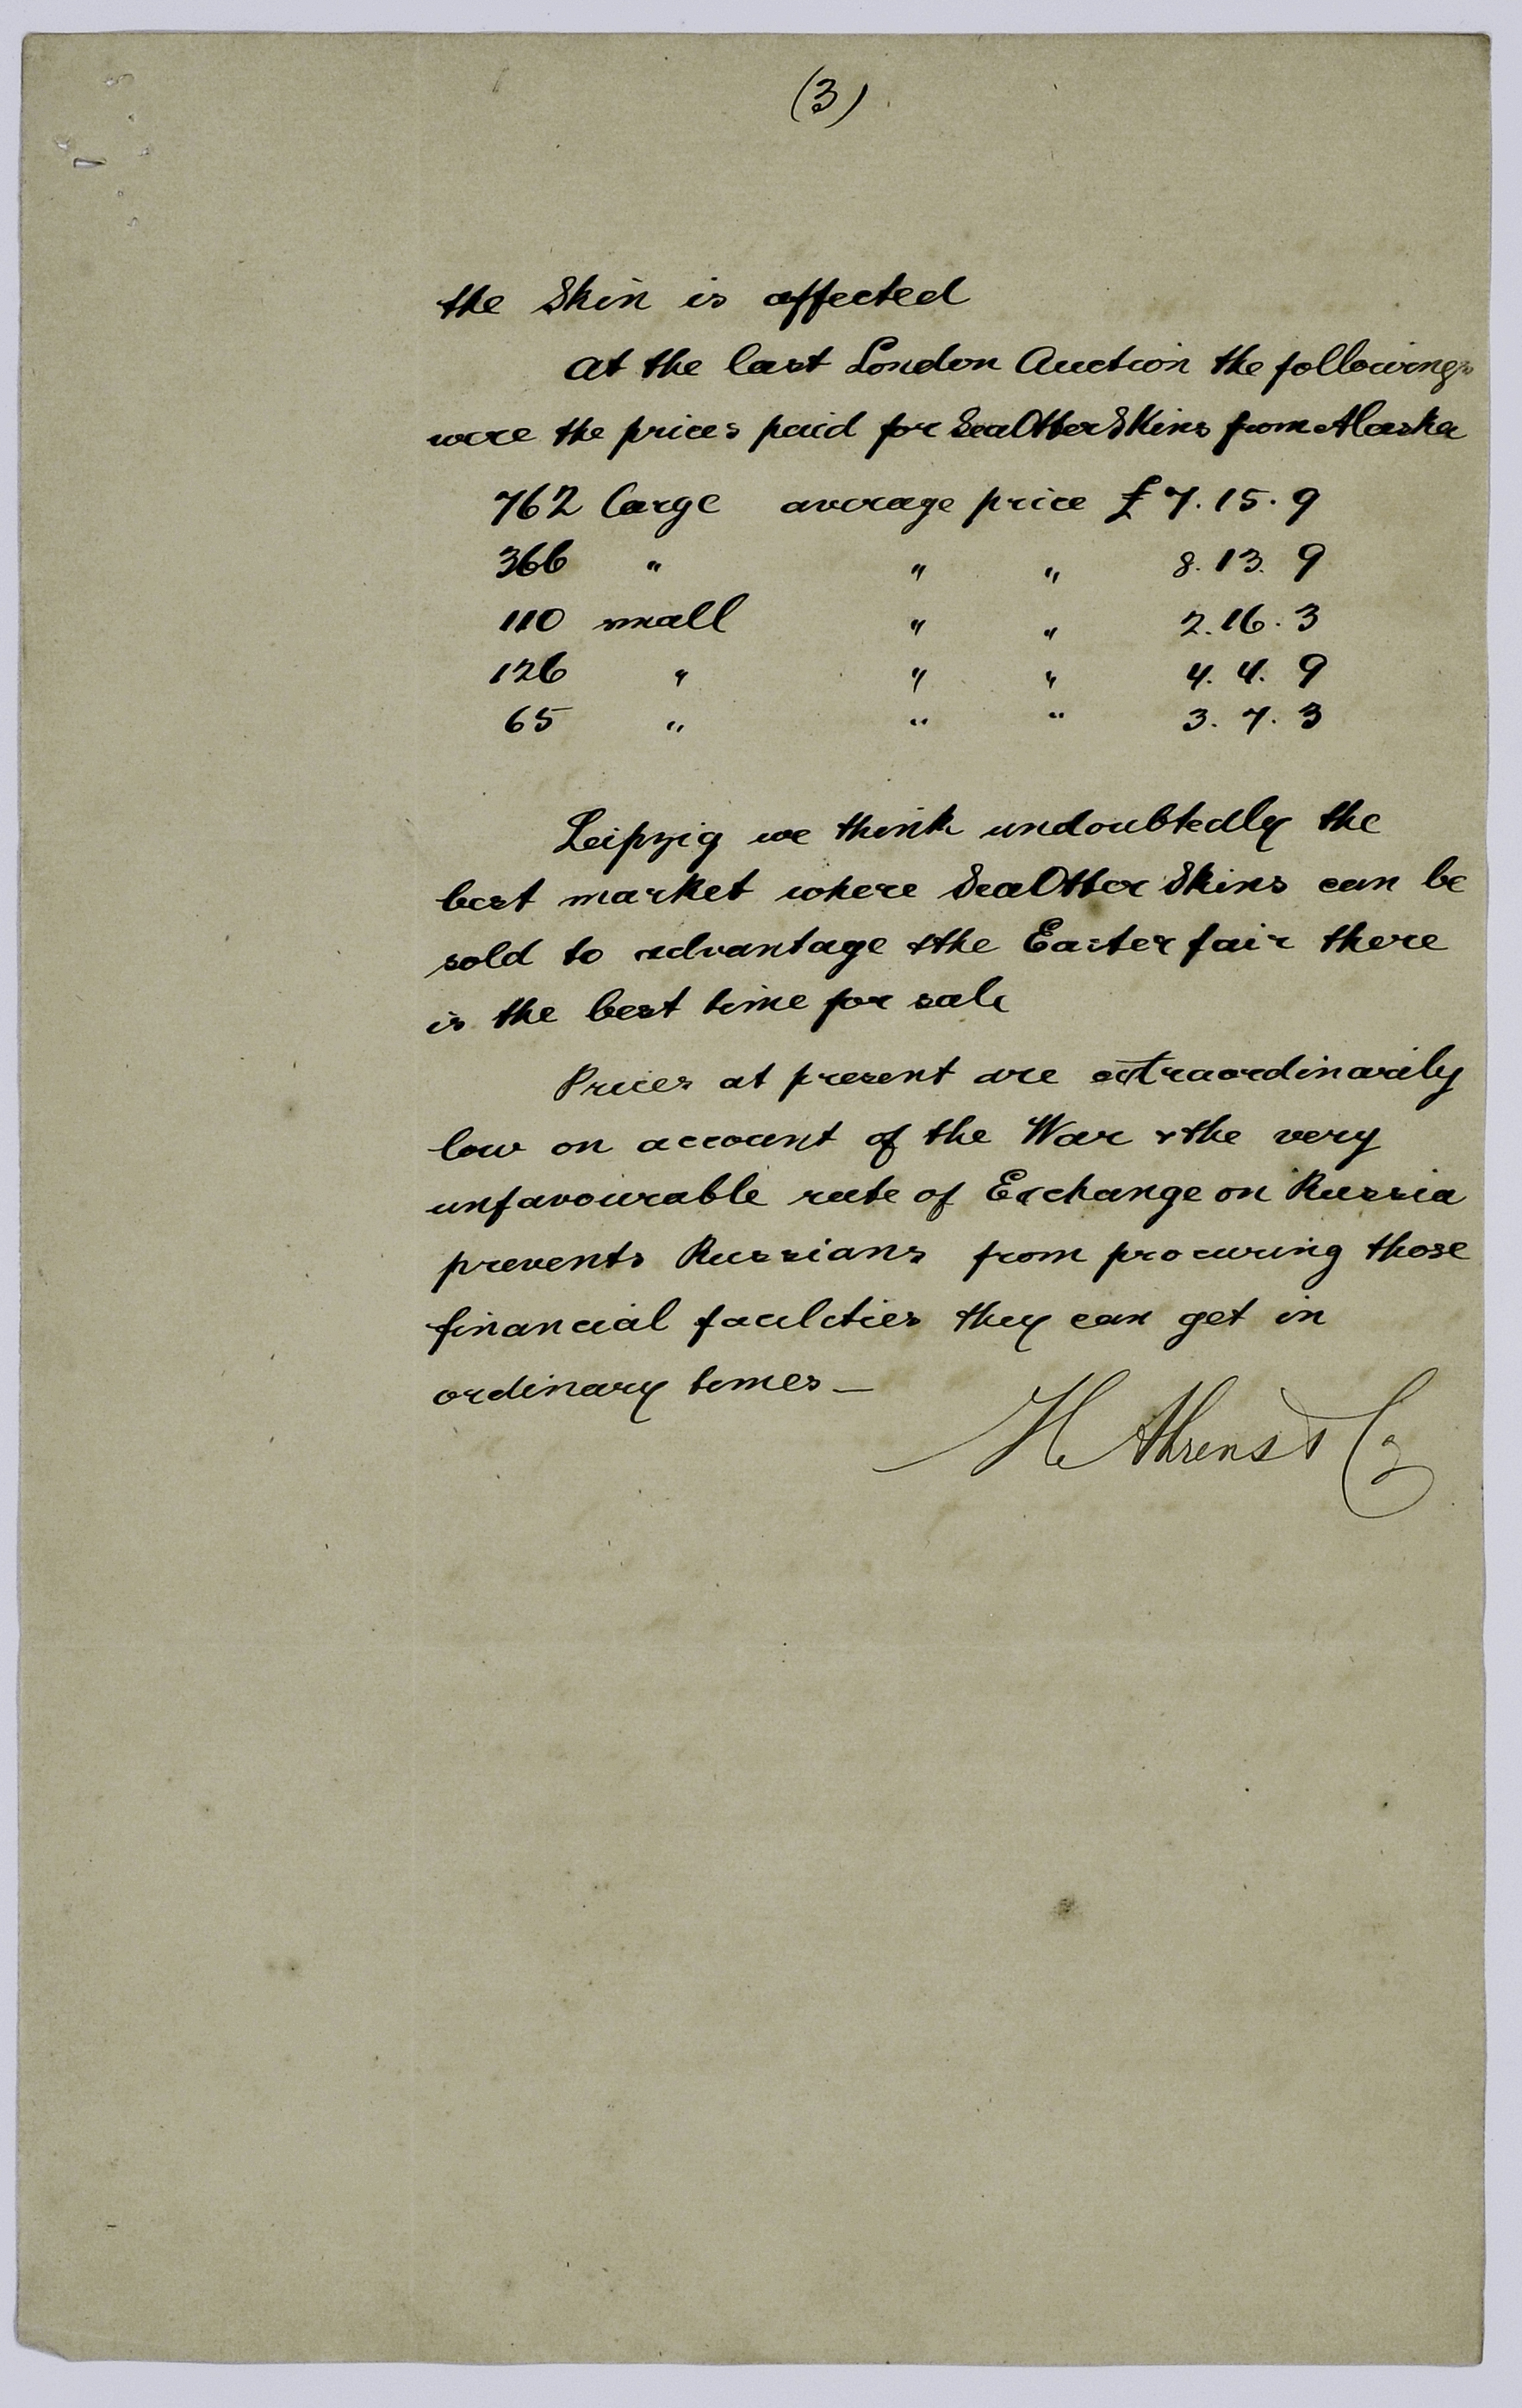 (3)
the Skin is affected
at the last London Auction the following
were the prices paid for Sea Otter Skins from Alaska
762 large average price £ 7. 15. 9
366 " " " 8. 13. 9
110 small " " 2. 16. 3
126 " " " 4. 4. 9
65 " " " 3. 7. 3
Leipzig we think undoubtedly the
best market where Sea Otter Skins can be
sold to advantage & the Easter fair there
is the best time for sale
Prices at present are extraordinarily
low on account of the War & the very
unfavourable rate of Exchange on Russia
prevents Russians from procuring those
financial facilities they can get in
ordinary times —
H Ahrens & Co